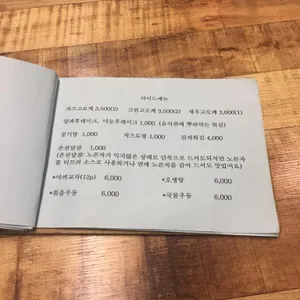 사이드메뉴
치즈고로케 3,500(2) 크림고로케 3,500(2) 새우고로케 3,000(1)
양파후레이크, 마늘후레이크 1,000 (음식위에 뿌려먹는 튀김)
공기밥 1,000 치즈토핑 1,000 감자튀김 4,000
온천달걀 1,000
(온천달걀: 노른자가 익지않은 상태로 단독으로 드셔도되지만 노른자
를 터뜨려 소스로 사용하거나 면에 노른자를 감아 드셔도 맛있어요)
*야끼교자(12p) 6,000 *오뎅탕 6,000
*볶음우동 6,000 *국물우동 6,000